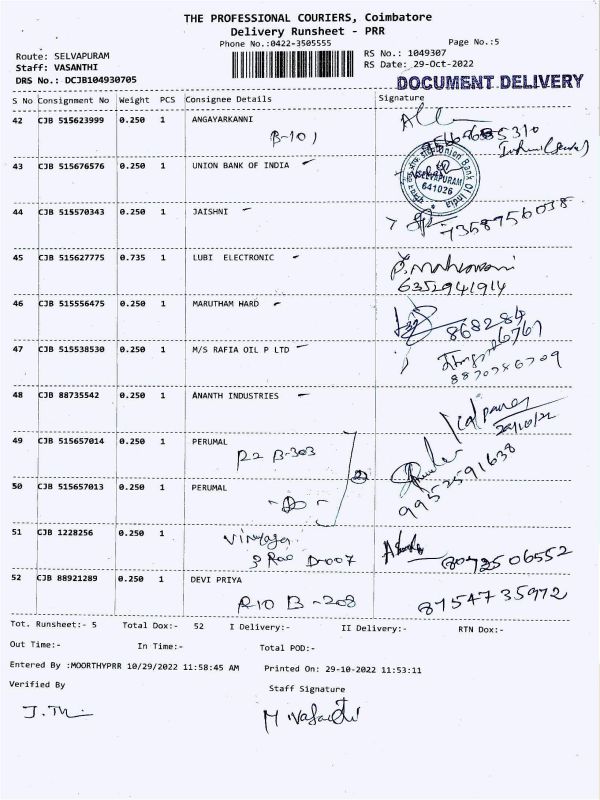 THE PROFESSIONAL COURIERS, Coimbatore
Delivery Runsheet - PRR
Phone No.:0422-3505555 Page No.:5
Route: SELVAPURAM RS No.: 1049307
Staff: VASANTHI RS Date: 29-Oct-2022
DRS No.: DCJB104930705
DOCUMENT DELIVERY
S No Consignment No Weight PCS Consignee Details Signature
42 CJB 515623999 0.250 1 ANGAYARKANNI
B-101
43 CJB 515676576 0.250 1 UNION BANK OF INDIA
Union Bank Of India
SELVAPURAM
641026
44 CJB 515570343 0.250 1 JAISHNI
7358756038
45 CJB 515627775 0.735 1 LUBI ELECTRONIC
6352941914
46 CJB 515556475 0.250 1 MARUTHAM HARD
868284
6767
47 CJB 515538530 0.250 1 M/S RAFIA OIL P LTD
48 CJB 88735542 0.250 1 ANANTH INDUSTRIES
29/10/22
49 CJB 515657014 0.250 1 PERUMAL
R2 B-303
9952591638
50 CJB 515657013 0.250 1 PERUMAL
51 CJB 1228256 0.250 1
D-007
8072506552
52 CJB 88921289 0.250 1 DEVI PRIYA
R10 B-208
8754735972
Tot. Runsheet:- 5 Total Dox:- 52 I Delivery:- II Delivery:- RTN Dox:-
Out Time:- In Time:- Total POD:-
Entered By :MOORTHYPRR 10/29/2022 11:58:45 AM Printed On: 29-10-2022 11:53:11
Verified By Staff Signature